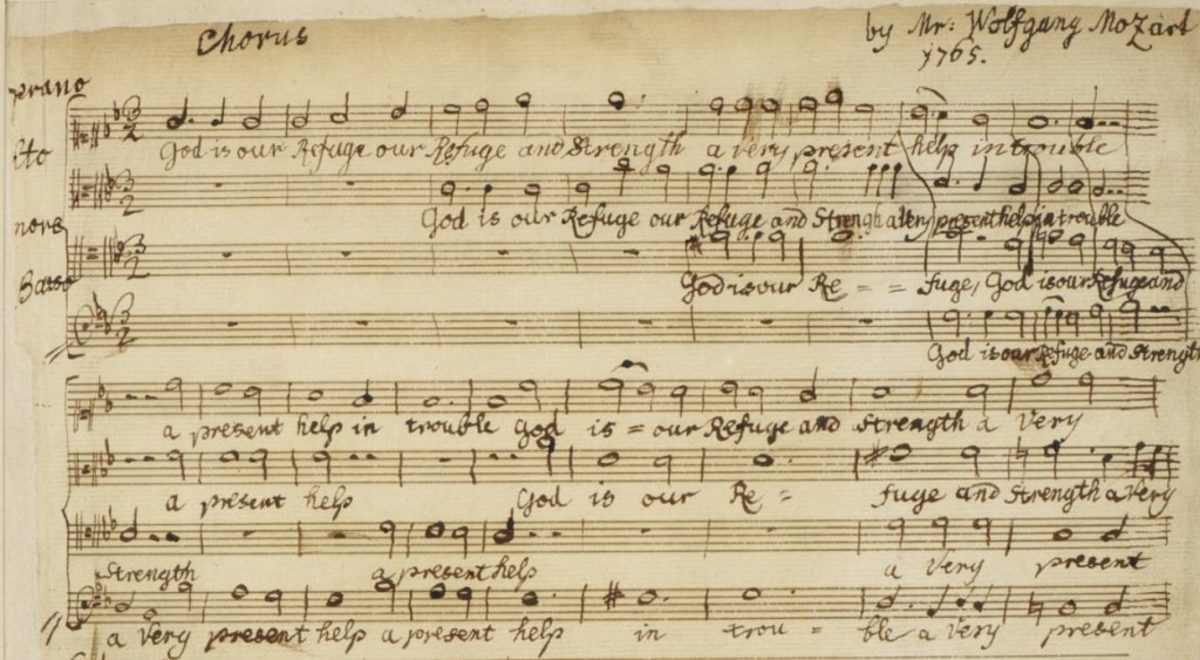 Chorus
by Mr: Wolfgang Mozart
1765.
prano
lto
nors
Basso
God is our Refuge our Refuge and Strength a very present help in trouble
God is our Refuge our Refuge and Strengh a Very present help in trouble
God is our Re = = fuge, God is our Refuge and
God is our Refuge and Strength
a present help in trouble God is = our Refuge and Strength a Very
a present help God is our Re = fuge and Strength a Very
Strength a present help a Very present
a Very present help a present help in trou = ble a Very present